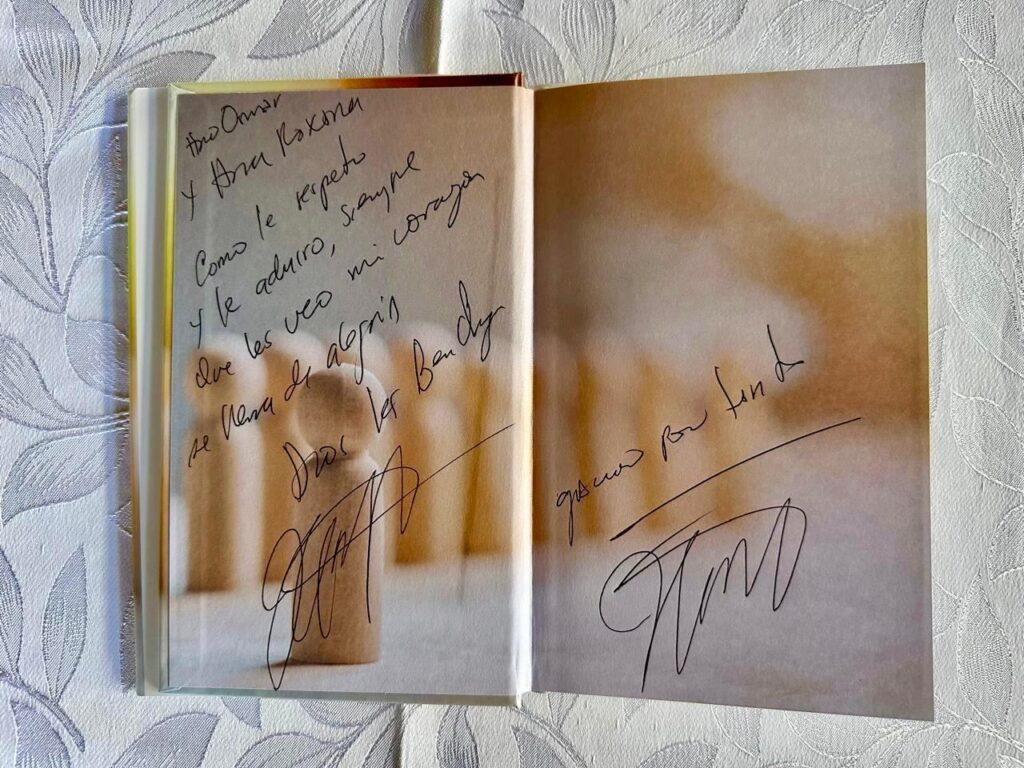 Hno Omar
y Ana Roxana
Como le respeto
y le admiro, siempre
que les veo mi corazon
se llena de alegria
Dios les Bendiga
gracias por